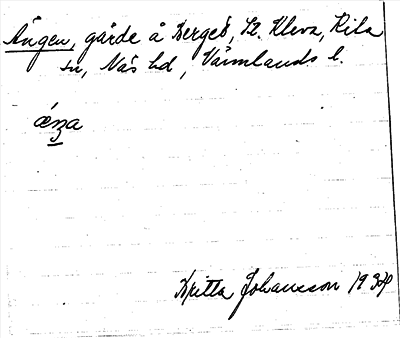 Ängen, gärde å Berget, St. Kleva, Kila
sn, Näs hd, Värmlands l.
Britta Johansson 1934